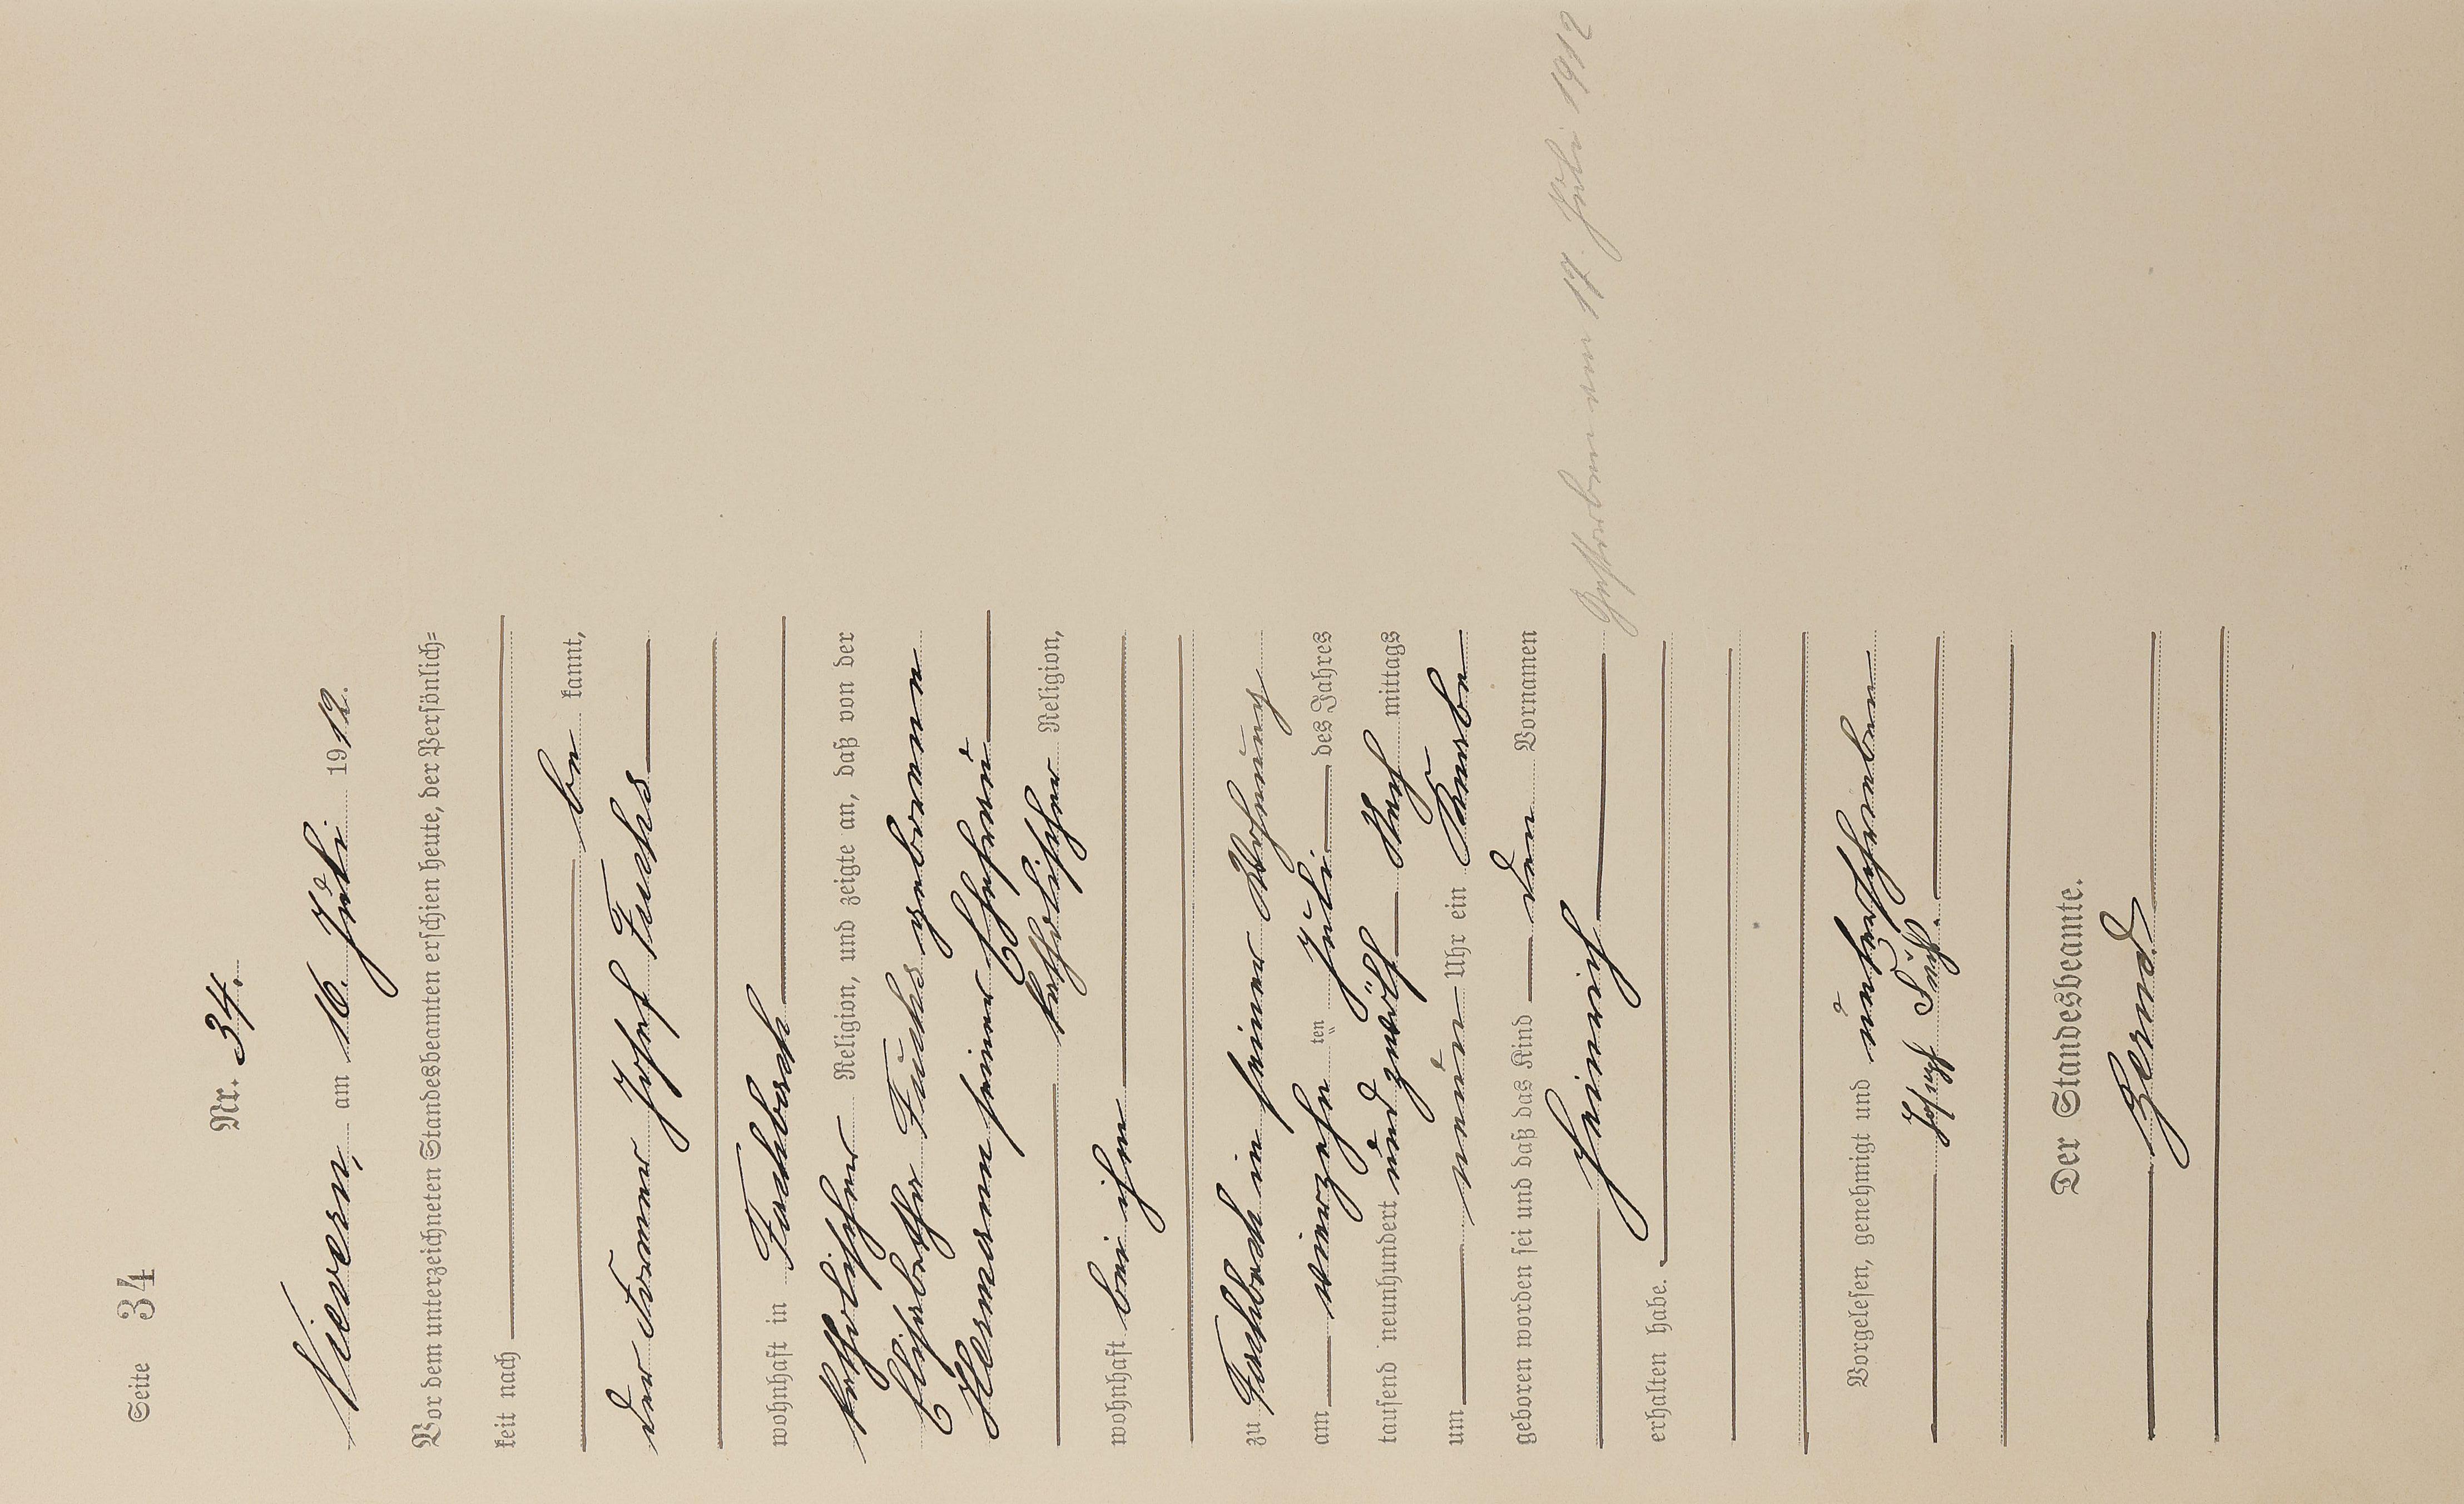 Seite 34
Nr. 34.
Nievern, am 16. Juli 1912.
Vor dem unterzeichneten Standesbeamten erschien heute, der Persönlich-
keit nach
be kannt,
der Former Josef Fuchs
wohnhaft in Fachbach
katholischer Religion, und zeigte an, daß von der
Elisabetha Fuchs geborenen
Hermann seiner Ehefrau
katholischer Religion,
wohnhaft bei ihm
zu Fachbach in seiner Wohnung
am vierzehn ten Juli des Jahres
tausend neunhundert und zwölf Nach mittags
um neun Uhr ein Knabe
geboren worden sei und daß das Kind den Vornamen
Heinrich
Gestorben am 17. Juli 1912
erhalten habe.
Vorgelesen, genehmigt und unterschrieben
Josef Fuchs.
Der Standesbeamte.